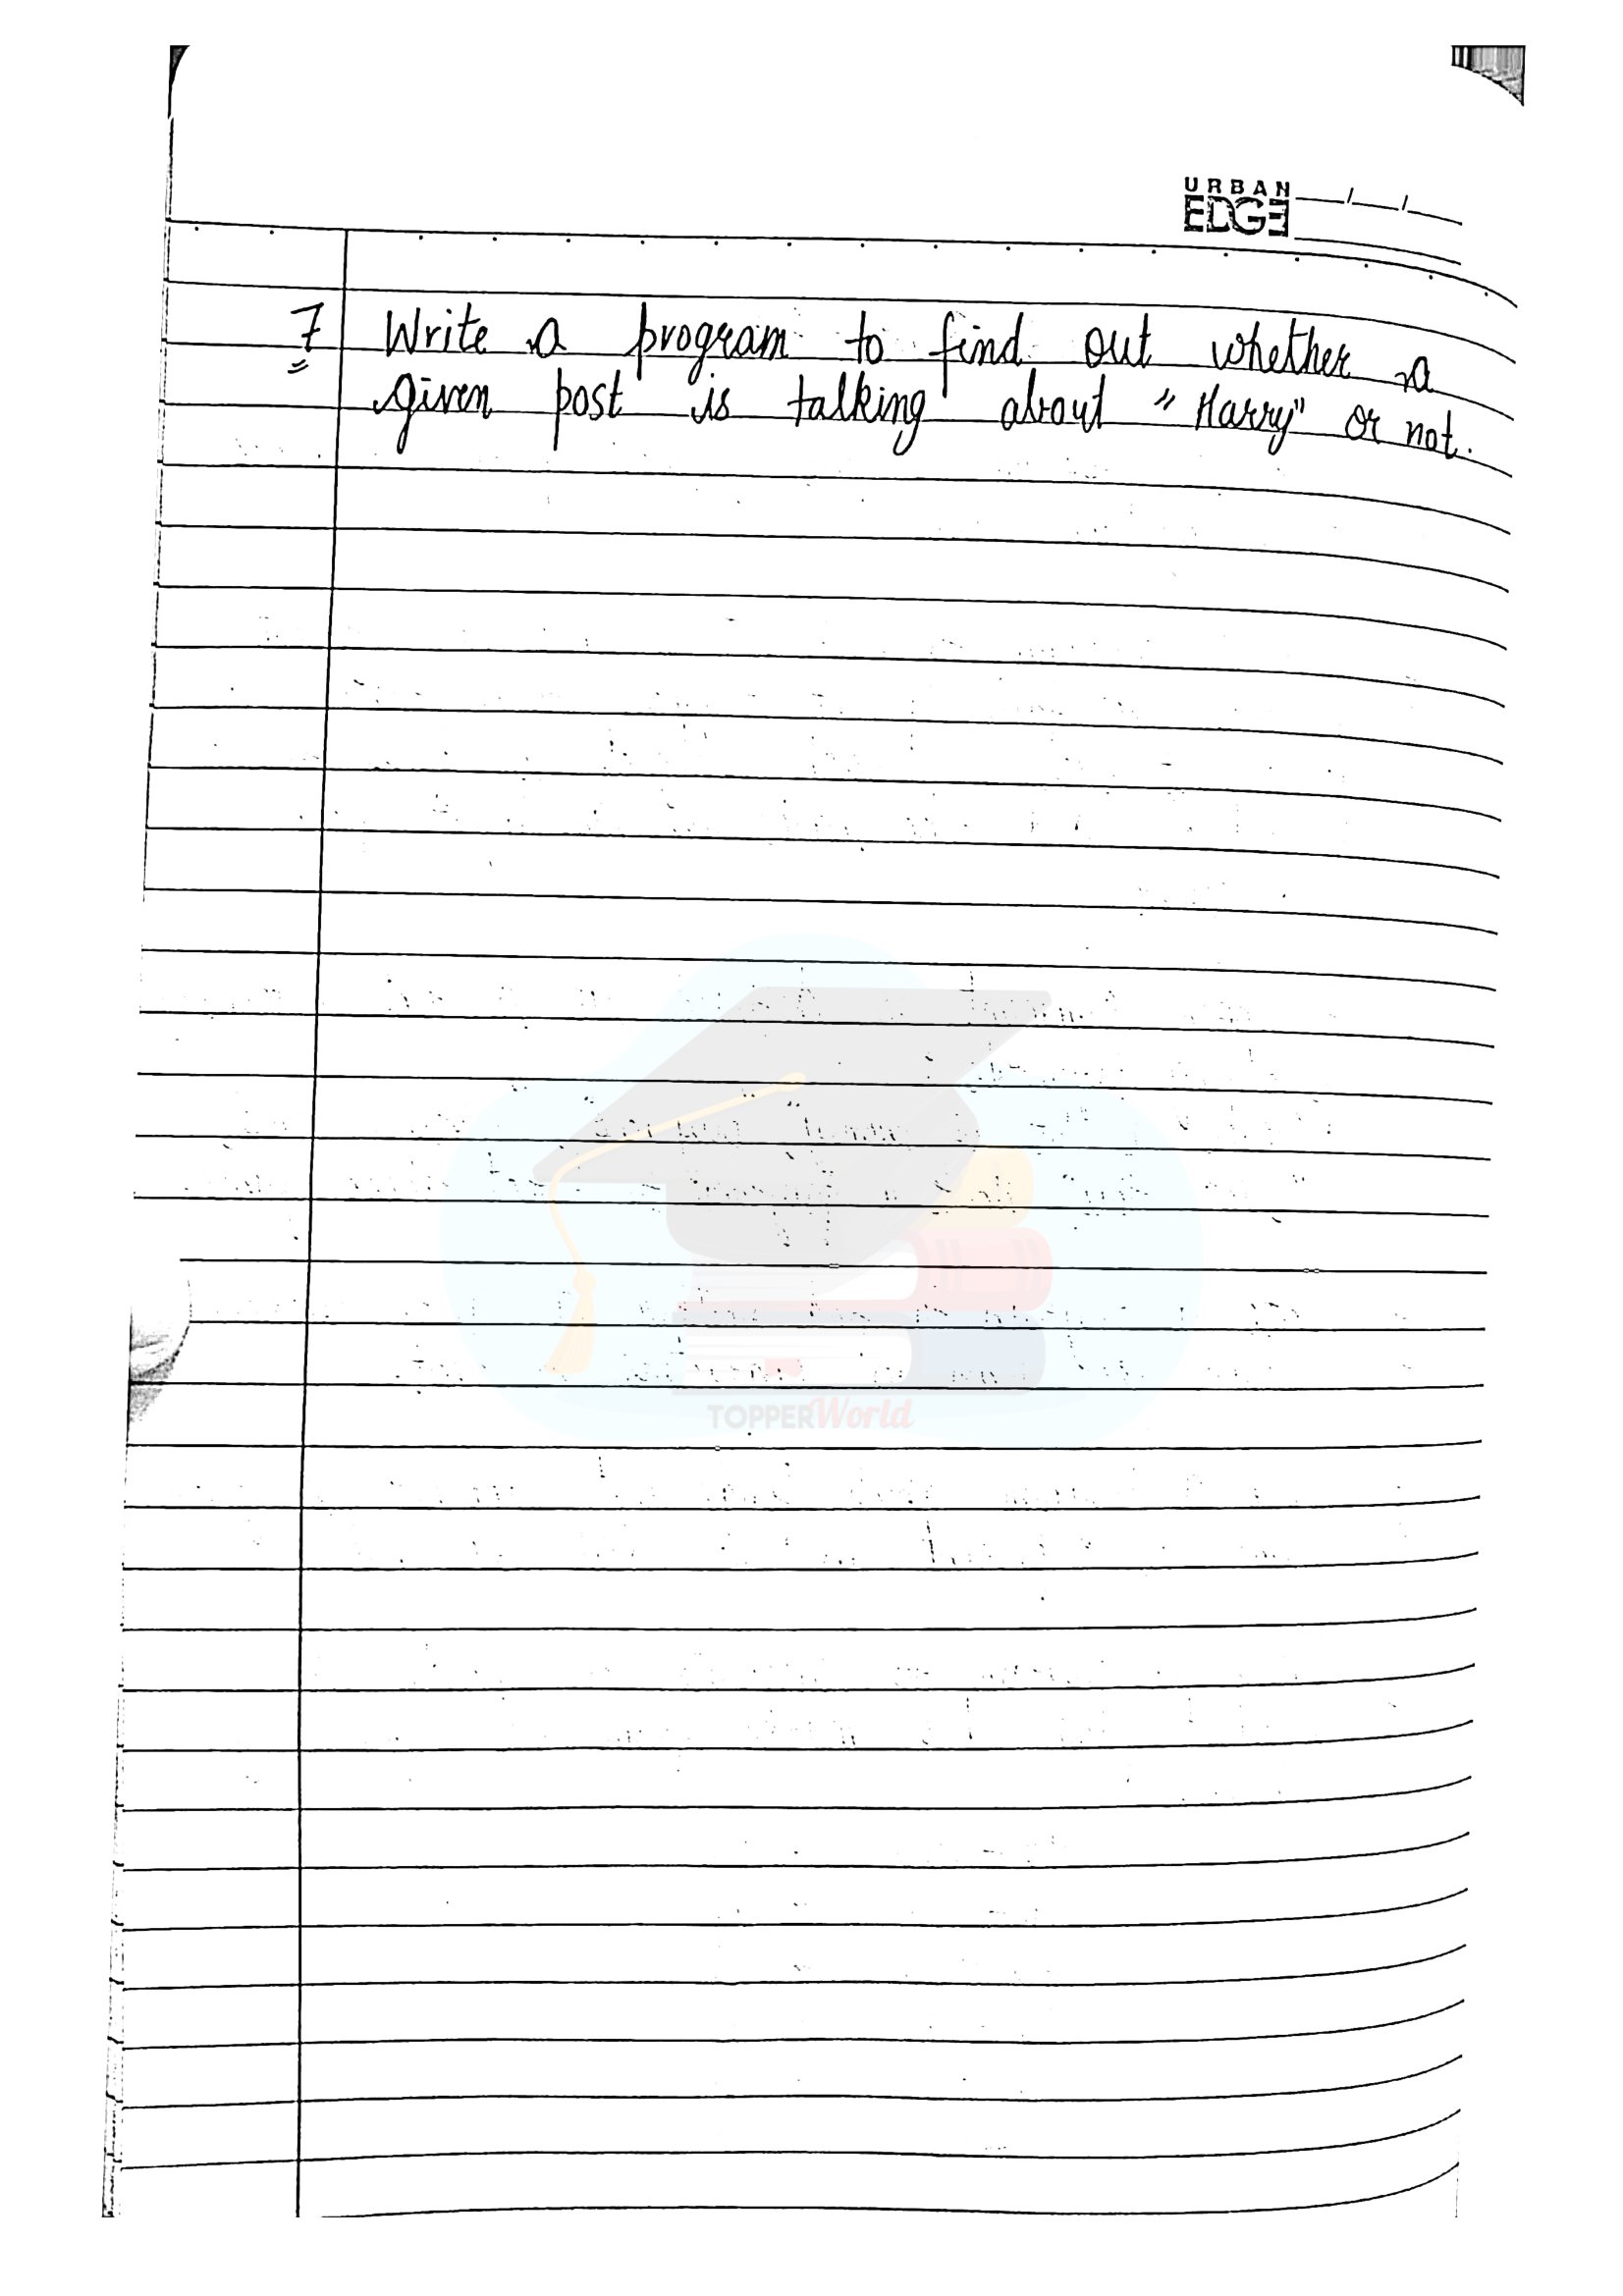 URBAN
EDGE
7 Write a program to find out whether a
given post is talking about "Harry" or not.
TOPPERWorld